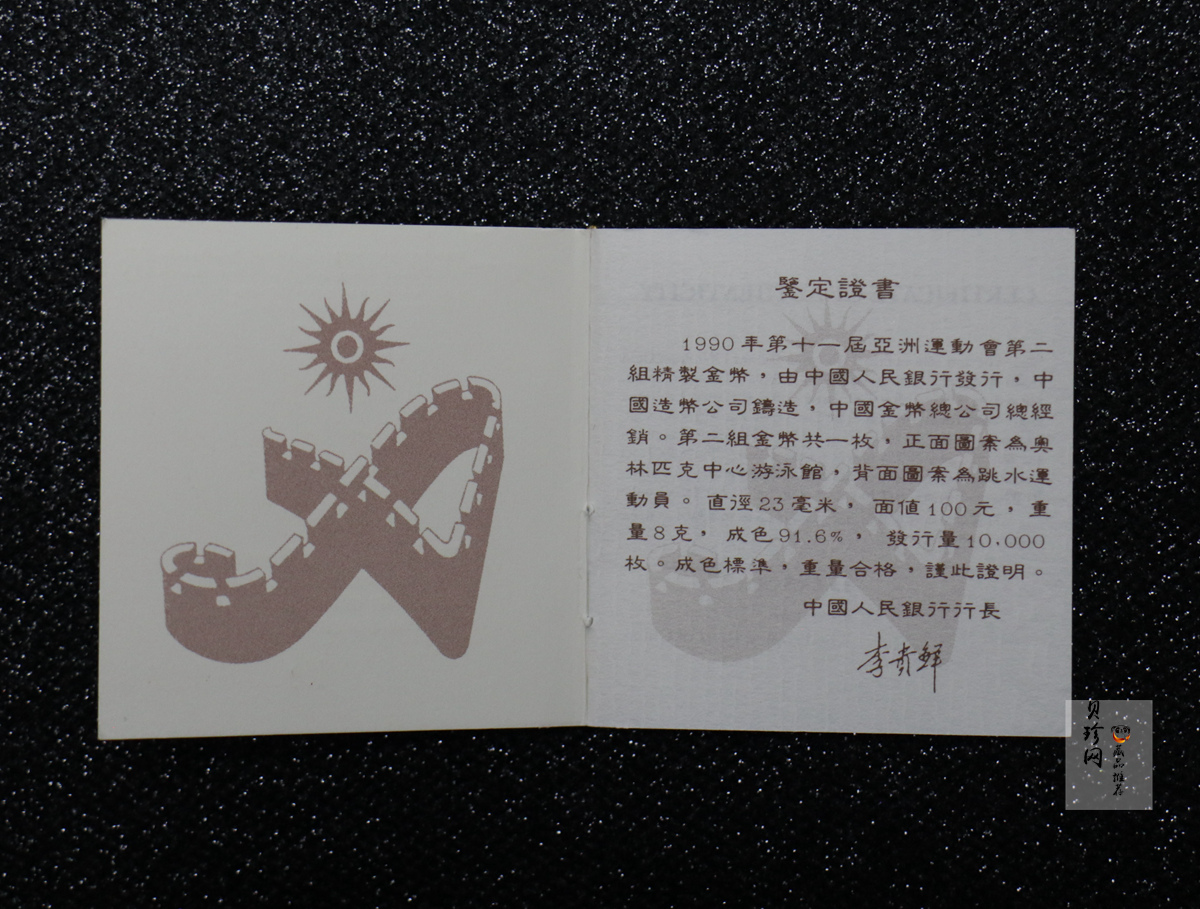 鑒定證書
1990年第十一屆亞洲運動會第二
組精製金幣，由中國人民銀行發行，中
國造幣公司鑄造，中國金幣總公司總經
銷。第二組金幣共一枚，正面圖案為奧
林匹克中心游泳館，背面圖案為跳水運
動員。直徑23毫米，面值100元，重
量8克，成色91.6%，發行量10,000
枚。成色標準，重量合格，謹此證明。
中國人民銀行行長
李贵鲜
贝珍网